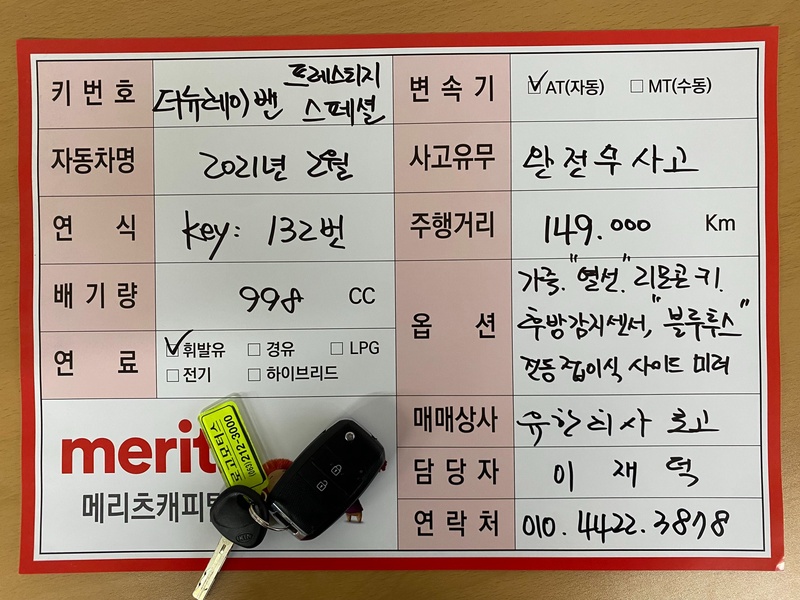 키 번 호 더뉴레이 밴 프레스티지
스페셜
자동차명 2021년 2월
연 식 key: 132번
배 기 량 998 CC
연 료 휘발유 경유 LPG
전기 하이브리드
변 속 기 AT(자동) MT(수동)
사고유무 완전무사고
주행거리 149.000 Km
옵 션 가죽. "열선". 리모콘 키.
후방감지센서, "블루투스"
전동접이식 사이드 미러
매매상사 유한회사 로고
담 당 자 이 재 덕
연 락 처 010.4422.3878
merit
메리츠캐피
로고모터스
(063)212-3000
KIA